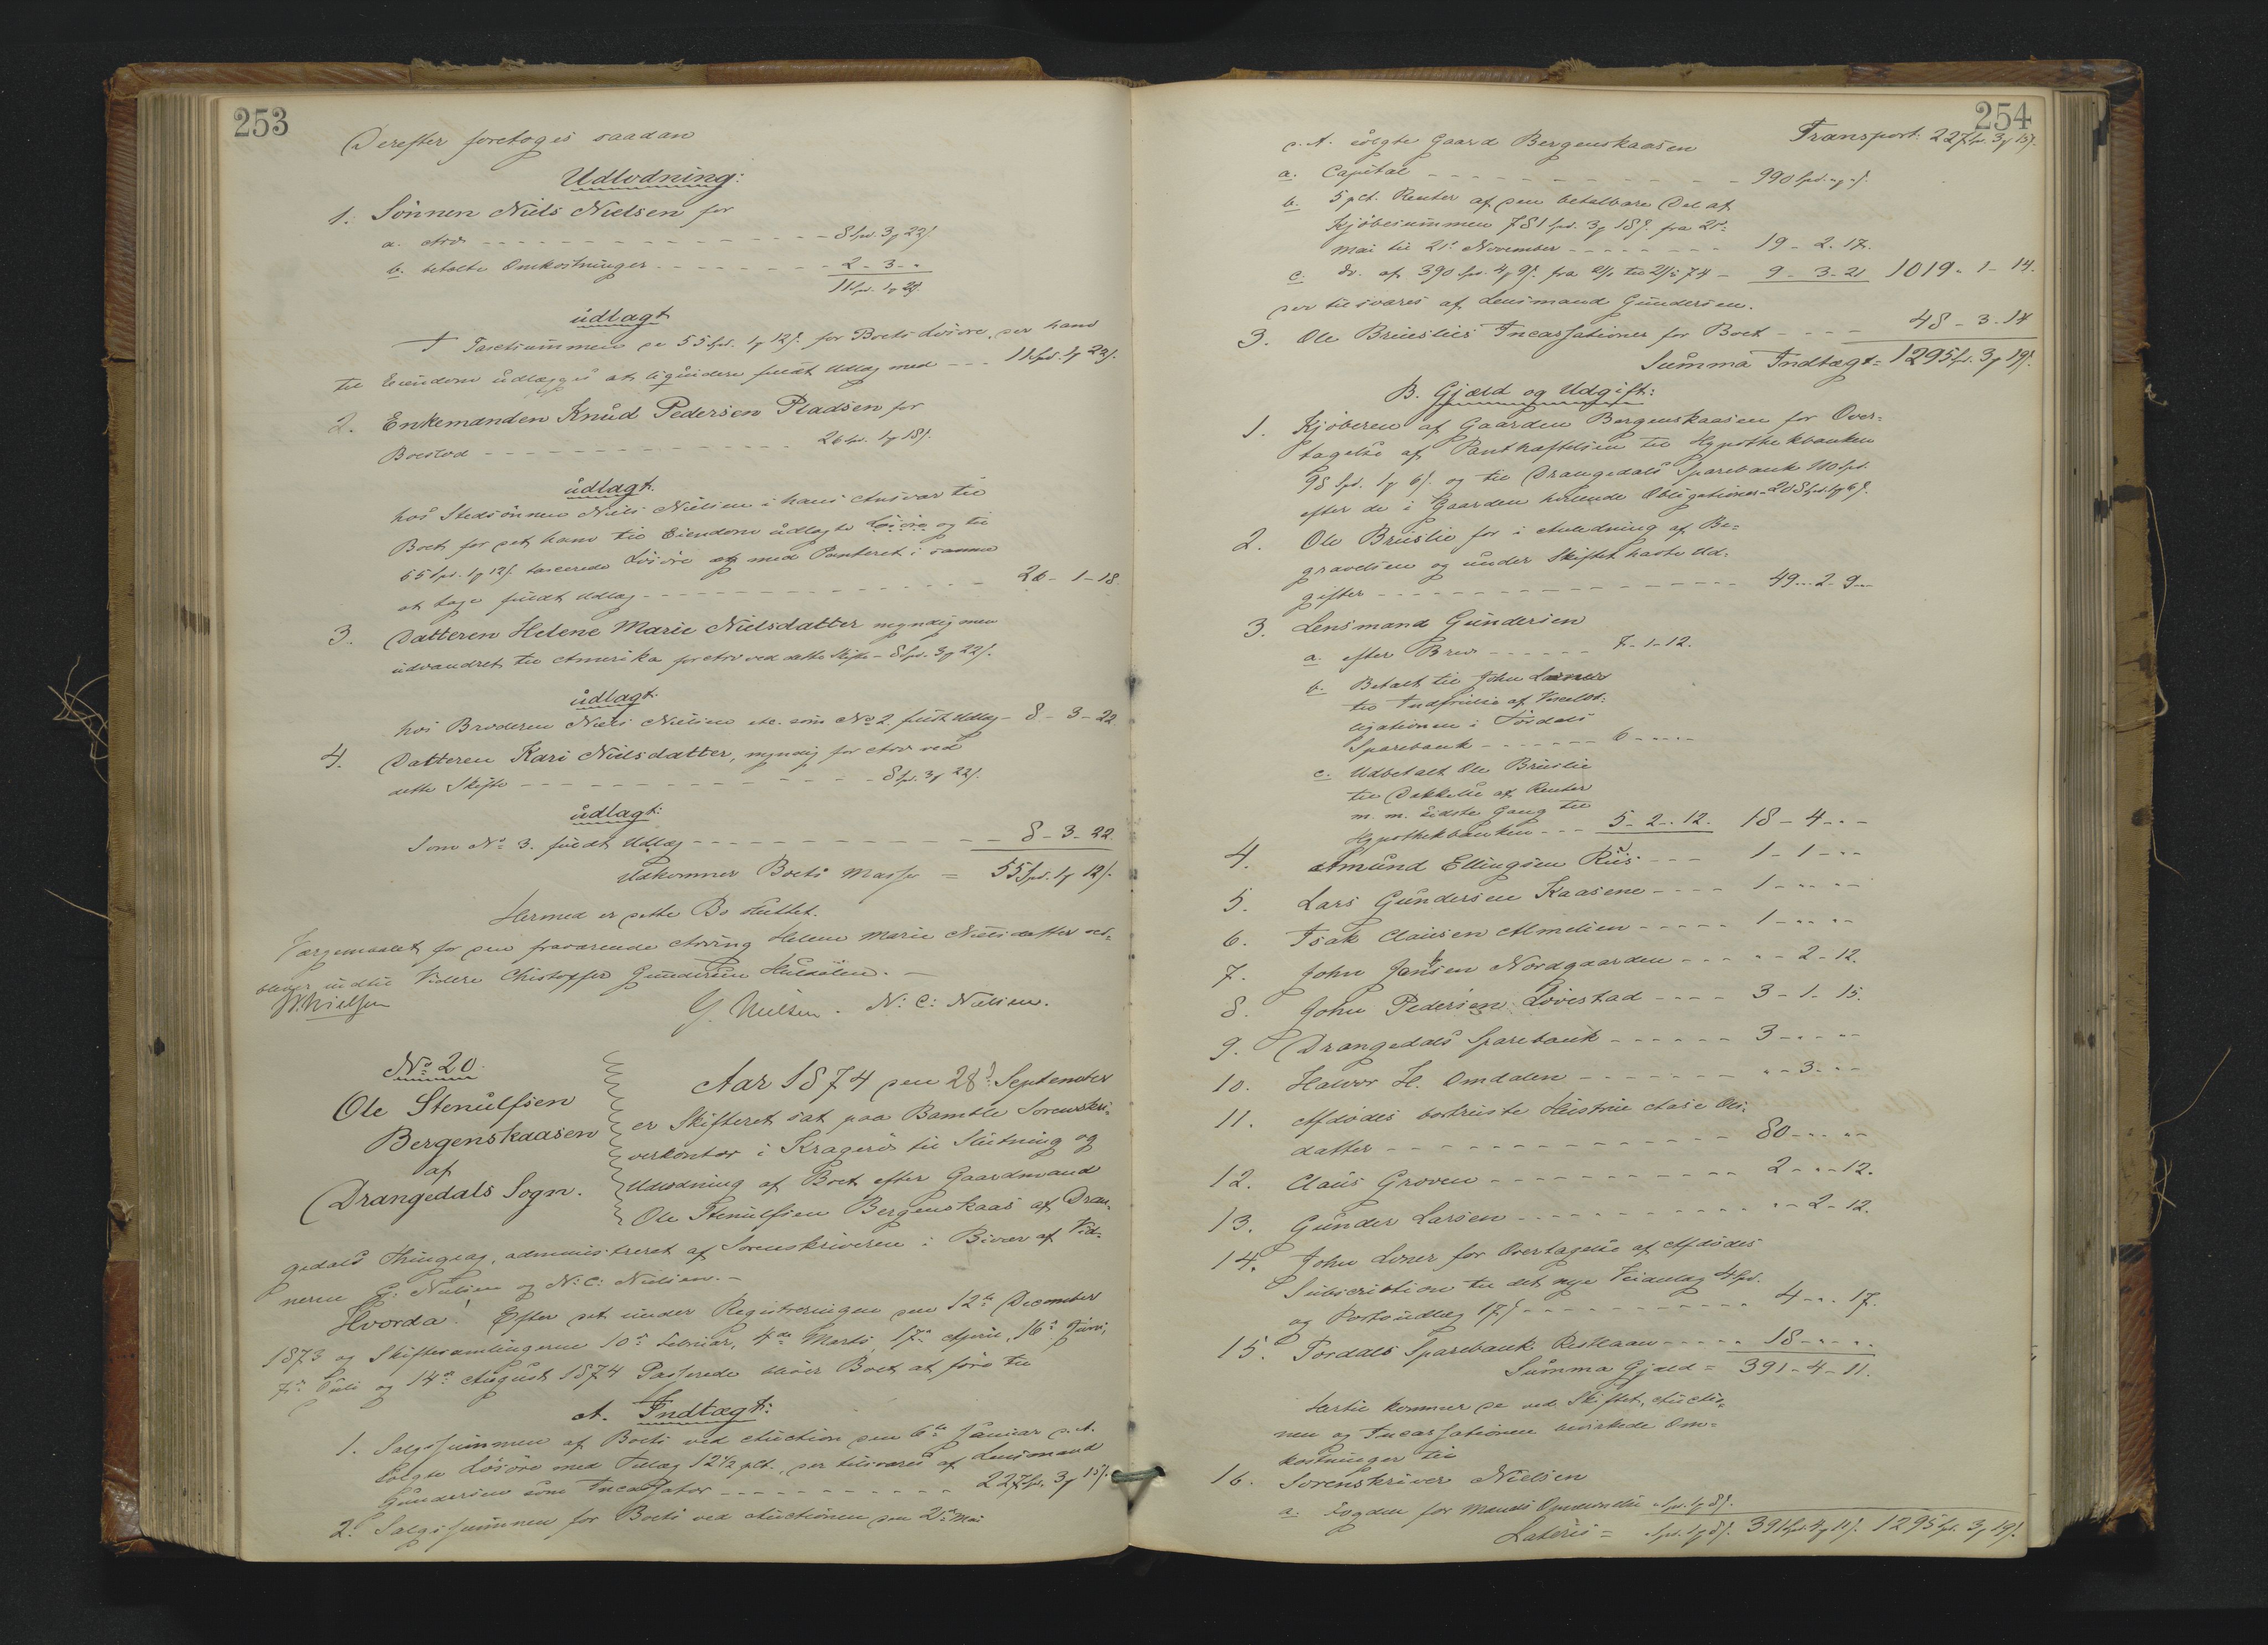 253
Derefter foretoges saadan
Udlodning:
1. Sønnen Niels Nielsen for
a. Arv - - - 8 Spd. 3 ƒ 22 ſ.
b. betalte Omkostninger - - - 2 - 3 - "
11 Spd. 1 ƒ 22 ſ.
udlagt
I Taxtsummen pr 55 Spd. 1 ƒ 12 ſ. for Boets Løsøre, der ham
til Eiendom udlægges at liqvidere fuldt Udlæg med - - - 11 Spd. 1 ƒ 22 ſ.
2. Enkemanden Knud Pedersen Pladsen for
Boeslod - - - 26 Spd. 1 ƒ 18 ſ.
udlagt.
hos Stedsønnen Niels Nielsen i hans Ansvar til
Boet for det ham til Eiendom udlagte Løsøre og til
55 Spd. 1 ƒ 12 ſ. taxerede Løsøre og med Panteret i samme
at tage fuldt Udlæg - - - 26 - 1 - 18.
3. Datteren Helene Marie Nielsdatter myndig men
udvandret til Amerika for Arv ved dette Skifte - 8 Spd. 3 ƒ 22 ſ.
udlagt.
hos Broderen Niels Nielsen etc. som No 2. fuldt Udlæg - 8 - 3 - 22
4. Datteren Kari Nielsdatter, myndig for Arv ved
dette Skifte - - - 8 Spd. 3 ƒ 22 ſ.
udlagt:
Som No 3. fuldt Udlæg - - - 8 - 3 - 22
Udkommer Boets Masse = 55 Spd. 1 ƒ 12 ſ.
Hermed er dette Bo sluttet.
Værgemaalet for den fraværende Arving Helene Marie Nielsdatter ved-
bliver indtil Videre Christopher Gundersen
W. Nielsen
G. Nielsen. N: C: Nielsen.
No 20.
Ole Stenulfsen
Bergenskaasen
af
Drangedals Sogn.
Aar 1874 den 28de September
er Skifteret sat paa Bamble Sorenskri-
verkontor i Kragerø til Slutning og
Udlodning af Boet efter Gaardmand
Ole Stenulfsen Bergenskaas af Dran-
gedals Thinglag, administreret af Sorenskriveren i Bivær af Vid-
nerne G: Nielsen og N: C: Nielsen. -
Hvorda! Efter det under Registreringen den 12te December
1873 og Skiftesamlingerne 10de Februar, 4de Marts, 17de April, 16de Juni,
7de Juli og 14de August 1874 Passerede bliver Boet at føre til
A. Indtægt:
1. Salgssummen af Boets ved Auction den 6te Januar d. A.
solgte Løsøre med Tillæg 12 1/2 pCt., der tilsvares af Lensmand
Gundersen som Incassator - - - 227 Spd. 3 ƒ 15 ſ.
2. Salgssummen for Boets ved Auctionen den 21de Mai
254
Transport: 227 Spd. 3 ƒ 15 ſ.
d. A. solgte Gaard Bergenskaasen
a. Capital - - - 990 Spd. " ƒ " ſ.
b. 5 pCt. Renter af den betalbare Del af
Kjøbesummen 781 Spd. 3 ƒ 18 ſ. fra 21de
Mai til 21de November - - - 19 - 2 - 17.
c. do. af 390 Spd. 4 ƒ 9 ſ. fra - 9 - 3 - 21 1019 - 1 - 14.
der tilsvares af Lensmand Gundersen.
3. Ole Bruslies Incassationer for Boet - - - 48 - 3 - 14
Summa Indtægt = 1295 Spd. 3 ƒ 19 ſ.
B. Gjæld og Udgift:
1. Kjøberen af Gaarden Bergenskaasen for Over-
tagelse af Pantheftelsen til Hypothekbanken
98 Spd. 1 ƒ 6 ſ. og til Drangedals Sparebank 110 Spd.
efter de i Gaarden heftende Obligationer - 208 Spd. 1 ƒ 6 ſ.
2. Ole Bruslie for i Anledning af Be-
gravelsen og under Skiftet havte Ud-
gifter - - - 49 - 2 - 9 -
3. Lensmand Gundersen
a. efter Brev - - - 7 - 1 - 12.
b. Betalt til John Lønner
til Indfrielse af Vexelob-
ligationen i Tørdals
Sparebank - - - 6 - " - "
c. Udbetalt Ole Bruslie
til Dækkelse af Renter
m. m. sidste Gang til
Hypothekbanken - - - 5 - 2 - 12. 18 - 4 - "
4. Amund Ellingsen Riis - - - 1 - 1 - "
5. Lars Gundersen Kaasene - - - 1 - " - "
6. Isak Clausen Almelien - - - 1 - " - "
7. John Jansen Nordgaarden - - - " - 2 - 12.
8. John Pedersen Løvestad - - - 3 - 1 - 15.
9. Drangedals Sparebank - - - 3 - " - "
10. Halvor H. Omdalen - - - " - 3 - "
11. Afdødes bortreiste Hustrue Aase Ols-
datter - - - 80 - " - "
12. Claus Groven - - - 2 - " - 12.
13. Gunder Larsen - - - " - 2 - 12.
14. John Løner for Overtagelse af Afdødes
Subscription til det nye Veianlæg 4 Spd.
og Portoudlæg 17 ſ - - - 4 - " 17.
15. Tørdals Sparebank Restlaan - - - 18 - " - "
Summa Gjæld = 391 - 4 - 11.
Hertil kommer de ved Skiftet, Auctio-
nen og Incassationen bevirkede Om-
kostninger til
16. Sorenskriver Nielsen
a. Fogden for Mands Spd. 1 ƒ 8 ſ.
Lateris = " Spd. 1 ƒ 8 ſ. 391 Spd. 4 ƒ 11 ſ. 1295 Spd. 3 ƒ 19 ſ.